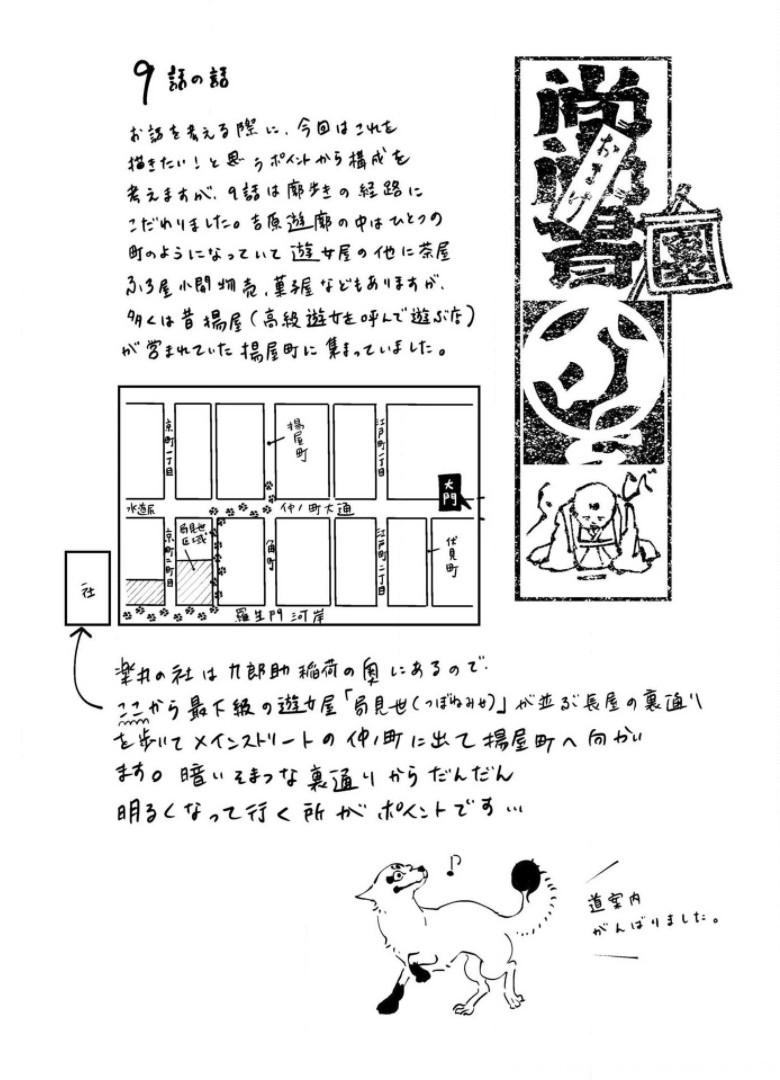 9話の話
お話を考える際に、今回はこれを
描きたい！と思うポイントから構成を
考えますが、9話は廓歩きの経路に
こだわりました。吉原遊廓の中はひとつの
町のようになっていて遊女屋の他に茶屋
ふろ屋小間物売、菓子屋などもありますが、
多くは昔揚屋(高級遊女を呼んで遊ぶ店)
が営まれていた揚屋町に集まっていました。
おまけ
京町一丁目
揚屋町
江戸町一丁目
大門
水道尻
仲ノ町大通
京町二丁目
局見世区域
角町
江戸町二丁目
伏見町
社
羅生門河岸
楽丸の社は九郎助稲荷の奥にあるので、
ここから最下級の遊女屋「局見世(つぼねみせ)」が並ぶ長屋の裏通り
を歩いてメインストリートの仲ノ町に出て揚屋町へ向かい
ます。暗いそまつな裏通りからだんだん
明るくなって行く所がポイントです…
♪
道案内
がんばりました。